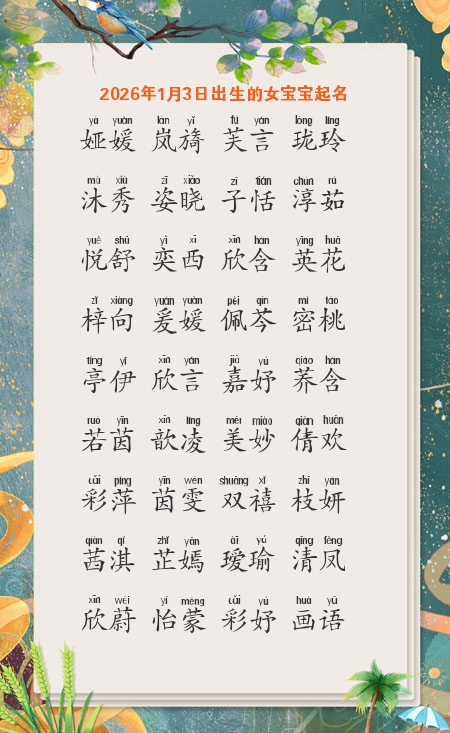 2026年1月3日出生的女宝宝起名
yà yuán lán yǐ fú yán lóng líng
娅媛 岚旖 芙言 珑玲
mù xiù zī xiǎo zǐ tián chún rú
沐秀 姿晓 子恬 淳茹
yuè shū yì xī xīn hán yīng huā
悦舒 奕西 欣含 英花
zǐ xiàng yuán yuàn pèi qín mì táo
梓向 爰媛 佩芩 密桃
tíng yī xīn yán jiā yú qiáo hán
亭伊 欣言 嘉妤 荞含
ruò yīn xīn líng měi miào qiàn huān
若茵 歆凌 美妙 倩欢
cǎi píng yīn wén shuāng xǐ zhī yán
彩萍 茵雯 双禧 枝妍
qiàn qí zhǐ yān ài yú qīng fèng
茜淇 芷嫣 瑷瑜 清凤
xīn wèi yí méng cǎi yú huà yǔ
欣蔚 怡蒙 彩妤 画语